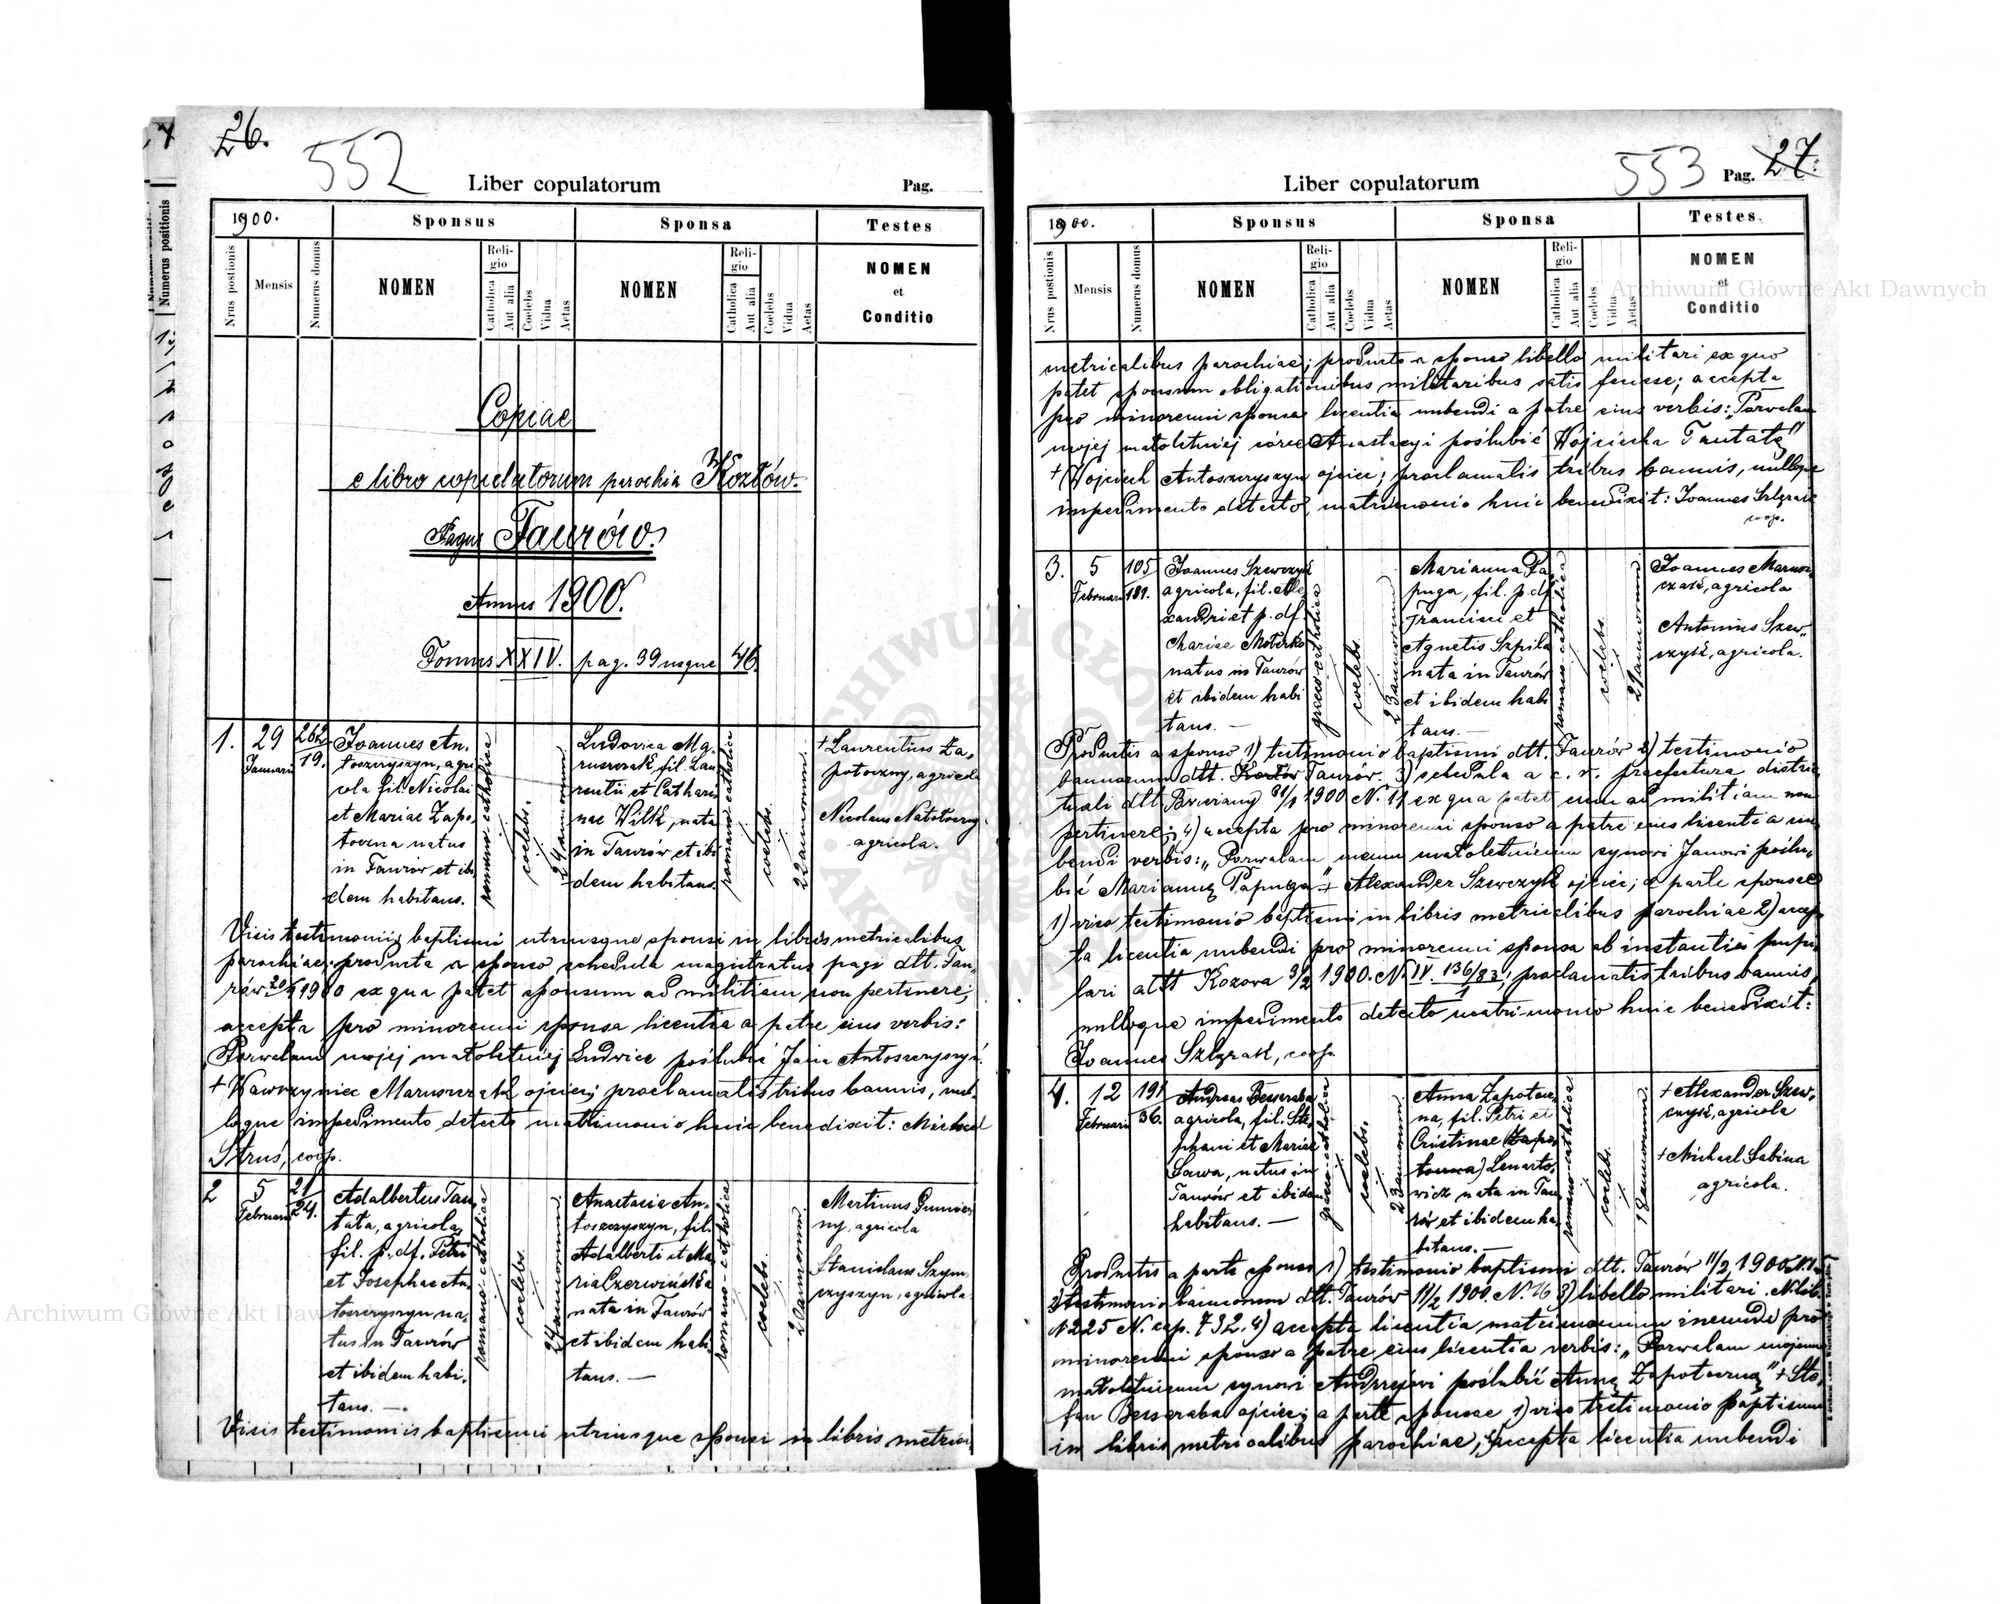 26.
552
Liber copulatorum
Pag.
1900.
Sponsus
Sponsa
Testes
Nrus postionis
Mensis
Numerus domus
NOMEN
Religio
Catholica
Aut alia
Coelebs
Vidua
Aetas
NOMEN
Religio
Catholica
Aut alia
Coelebs
Vidua
Aetas
NOMEN
et
Conditio
Copiae
e libro copulatorum parochia Kozłów.
Pagus Taurów.
Annus 1900.
Tomus XXIV. pag. 39 usque 46.
1.
29
Januarii
262
19.
Joannes An,
toszczyszyn, agri
cola fil. Nicolai
et Mariae Zapo,
toczna natus
in Taurów et ibi
dem habitans.
romano-catholica
coelebs.
24 annorum
Ludovica Ma,
ruszczak, fil. Lau
rentii et Cathari
nae Wilk, nata
in Taurów et ibi
dem habitans.
romano catholica
coelebs.
22 annorum.
+ Laurentius Za,
potoczny, agricola
Nicolaus
agricola.
Visis testimoniis baptismi utriusque sponsi in libris metricalibus
parochiae; producta a sponso schedula magistratus pagi dtt. Tau,
rów 1900 ex qua patet sponsum ad militiam non pertinere;
accepta pro minorenni sponsa licentia a patre eius verbis:
Pozwalam mojej małoletniej Ludwice poślubić Jana Antoszczyszyn.
+ Wawrzyniec Maruszczak ojciec; proclamatis tribus bannis, nul,
loque impedimento detecto matrimonio huic benedixit: Michael
Struś, coop.
2
5
Februarii
21
24.
Adalbertus Tau,
tata, agricola
fil. p. df. Petri
et Josephae An,
toszczyszyn na,
tus in Taurów
et ibidem habi,
tans. —
romano-catholica
coelebs.
24 annorum
Anastasia An,
toszczyszyn, fil.
Adalberti et Ma
ria Czerwińska
nata in Taurów
et ibidem habi,
tans. —
romano-catholica
coelebs.
20 annorum.
Martinus
agricola
Stanislaus Szym,
czyszyn, agricola.
Visis testimoniis baptismi utriusque sponsi in libris metrica,
27.
553
Liber copulatorum
Pag.
1900.
Sponsus
Sponsa
Testes
Nrus postionis
Mensis
Numerus domus
NOMEN
Religio
Catholica
Aut alia
Coelebs
Vidua
Aetas
NOMEN
Religio
Catholica
Aut alia
Coelebs
Vidua
Aetas
NOMEN
et
Conditio
metricalibus parochiae; producto a sponso libello militari ex quo
patet sponsum obligationibus militaribus satis fecisse; accepta
pro minorenni sponsa licentia nubendi a patre eius verbis: „Pozwalam
mojej małoletniej córce Anastazyi poślubić Wojciecha Tautatę"
+ Wojciech Antoszczyszyn ojciec; proclamatis tribus bannis, nulloque
impedimento detecto, matrimonio huic benedixit: Joannes Szlęzak
coop.
3.
5
Februarii
105
181.
Joannes Szewczyk
agricola, fil. Ale
xandri et p. df.
Mariae
natus in Taurów
et ibidem habi
tans. —
graeco catholica
coelebs.
23 annorum
Marianna Pa
puga, fil. p. df
Francisci et
Agnetis Szpila
nata in Taurów
et ibidem habi
tans. —
romano-catholica
coelebs.
21 annorum
Joannes Marusz,
czak, agricola
Antonius Szew,
czyk, agricola.
Productis a sponso 1) testimonio baptismi dtt. Taurów 2) testimonio
bannorum dtt. Kozłów Taurów. 3) schedula a c. r. praefectura distric
tuali dtt Brzeżany 31/1 1900 N. 11 ex qua patet eum ad militiam non
pertinere; 4) accepta pro minorenni sponso a patre eius licentia nu
bendi verbis: „Pozwalam memu małoletniemu synowi Janowi poślu,
bić Mariannę Papuga" + Alexander Szewczyk ojciec; a parte sponsae
1) viso testimonio baptismi in libris metricalibus parochiae 2) accep,
ta licentia nubendi pro minorenni sponsa ab instantia pupi,
lari dtt Kozowa 3/2 1900. N. IV. 136/83/1; proclamatis tribus bannis,
nulloque impedimento detecto matrimonio huic benedixit:
Joannes Szlęzak, coop.
4.
12
Februarii
191
36.
Andreas Besseraba
agricola, fil. Ste,
phani et Mariae
Sawa, natus in
Taurów et ibidem
habitans. —
graeco-catholica
coelebs.
23 annorum
Anna Zapotocz,
na, fil. Petri et
Cristinae (Zapo
toczna) Lenarto,
wicz nata in Tau
rów et ibidem ha,
bitans. —
romano-catholica
coelebs.
18 annorum.
+ Alexander Szew,
czyk, agricola
+ Michael Sabina
agricola.
Productis a parte sponso 1) testimonio baptismi dtt. Taurów 11/2 1900
2) testimonio bannorum dtt. Taurów 11/2 1900. N. 16 3) libello militari
N 225 N. cap. 732. 4) accepta licentia matrimonium ineundi pro
minorenni sponso a patre eius licentia verbis: „Pozwalam mojemu
małoletniemu synowi Andrzejowi poślubić Annę Zapotoczną" + Ste,
fan Besseraba ojciec; a parte sponsae 1) viso testimonio baptismi
in libris metricalibus parochiae; accepta licentia nubendi
Archiwum Główne Akt Dawnych
Archiwum Główne Akt Dawnych